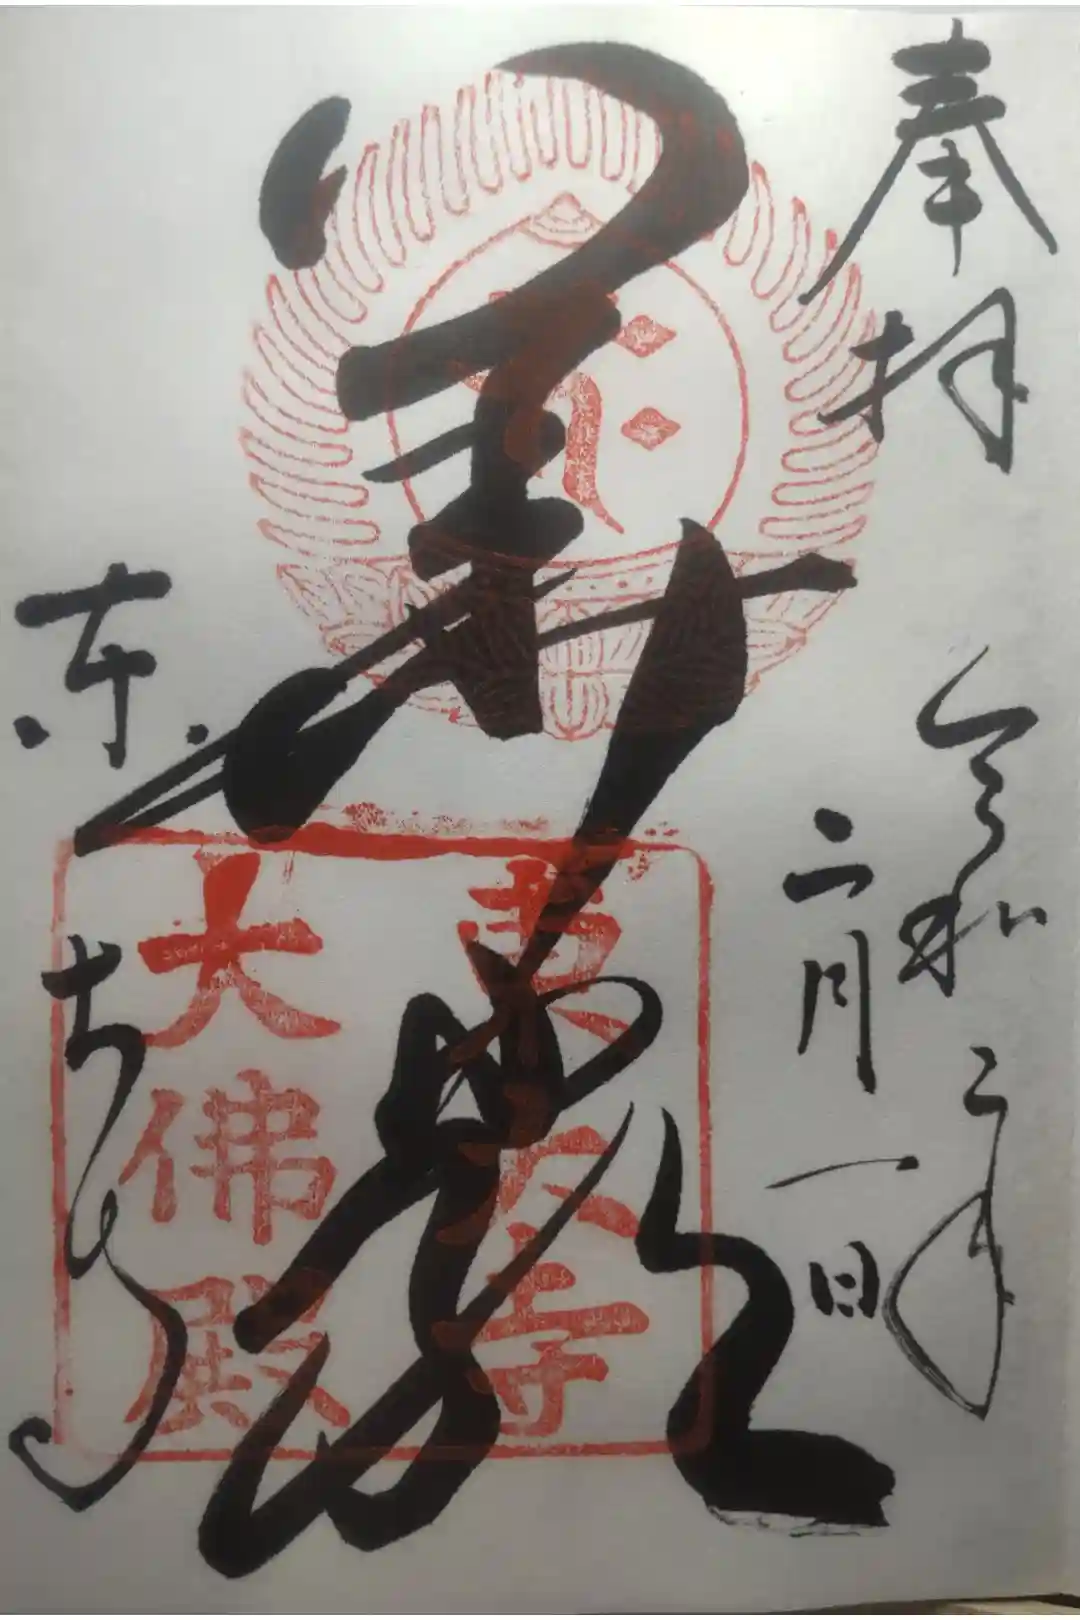 奉拝
令和二年
二月一日
華嚴
東大寺
大佛殿
東大寺